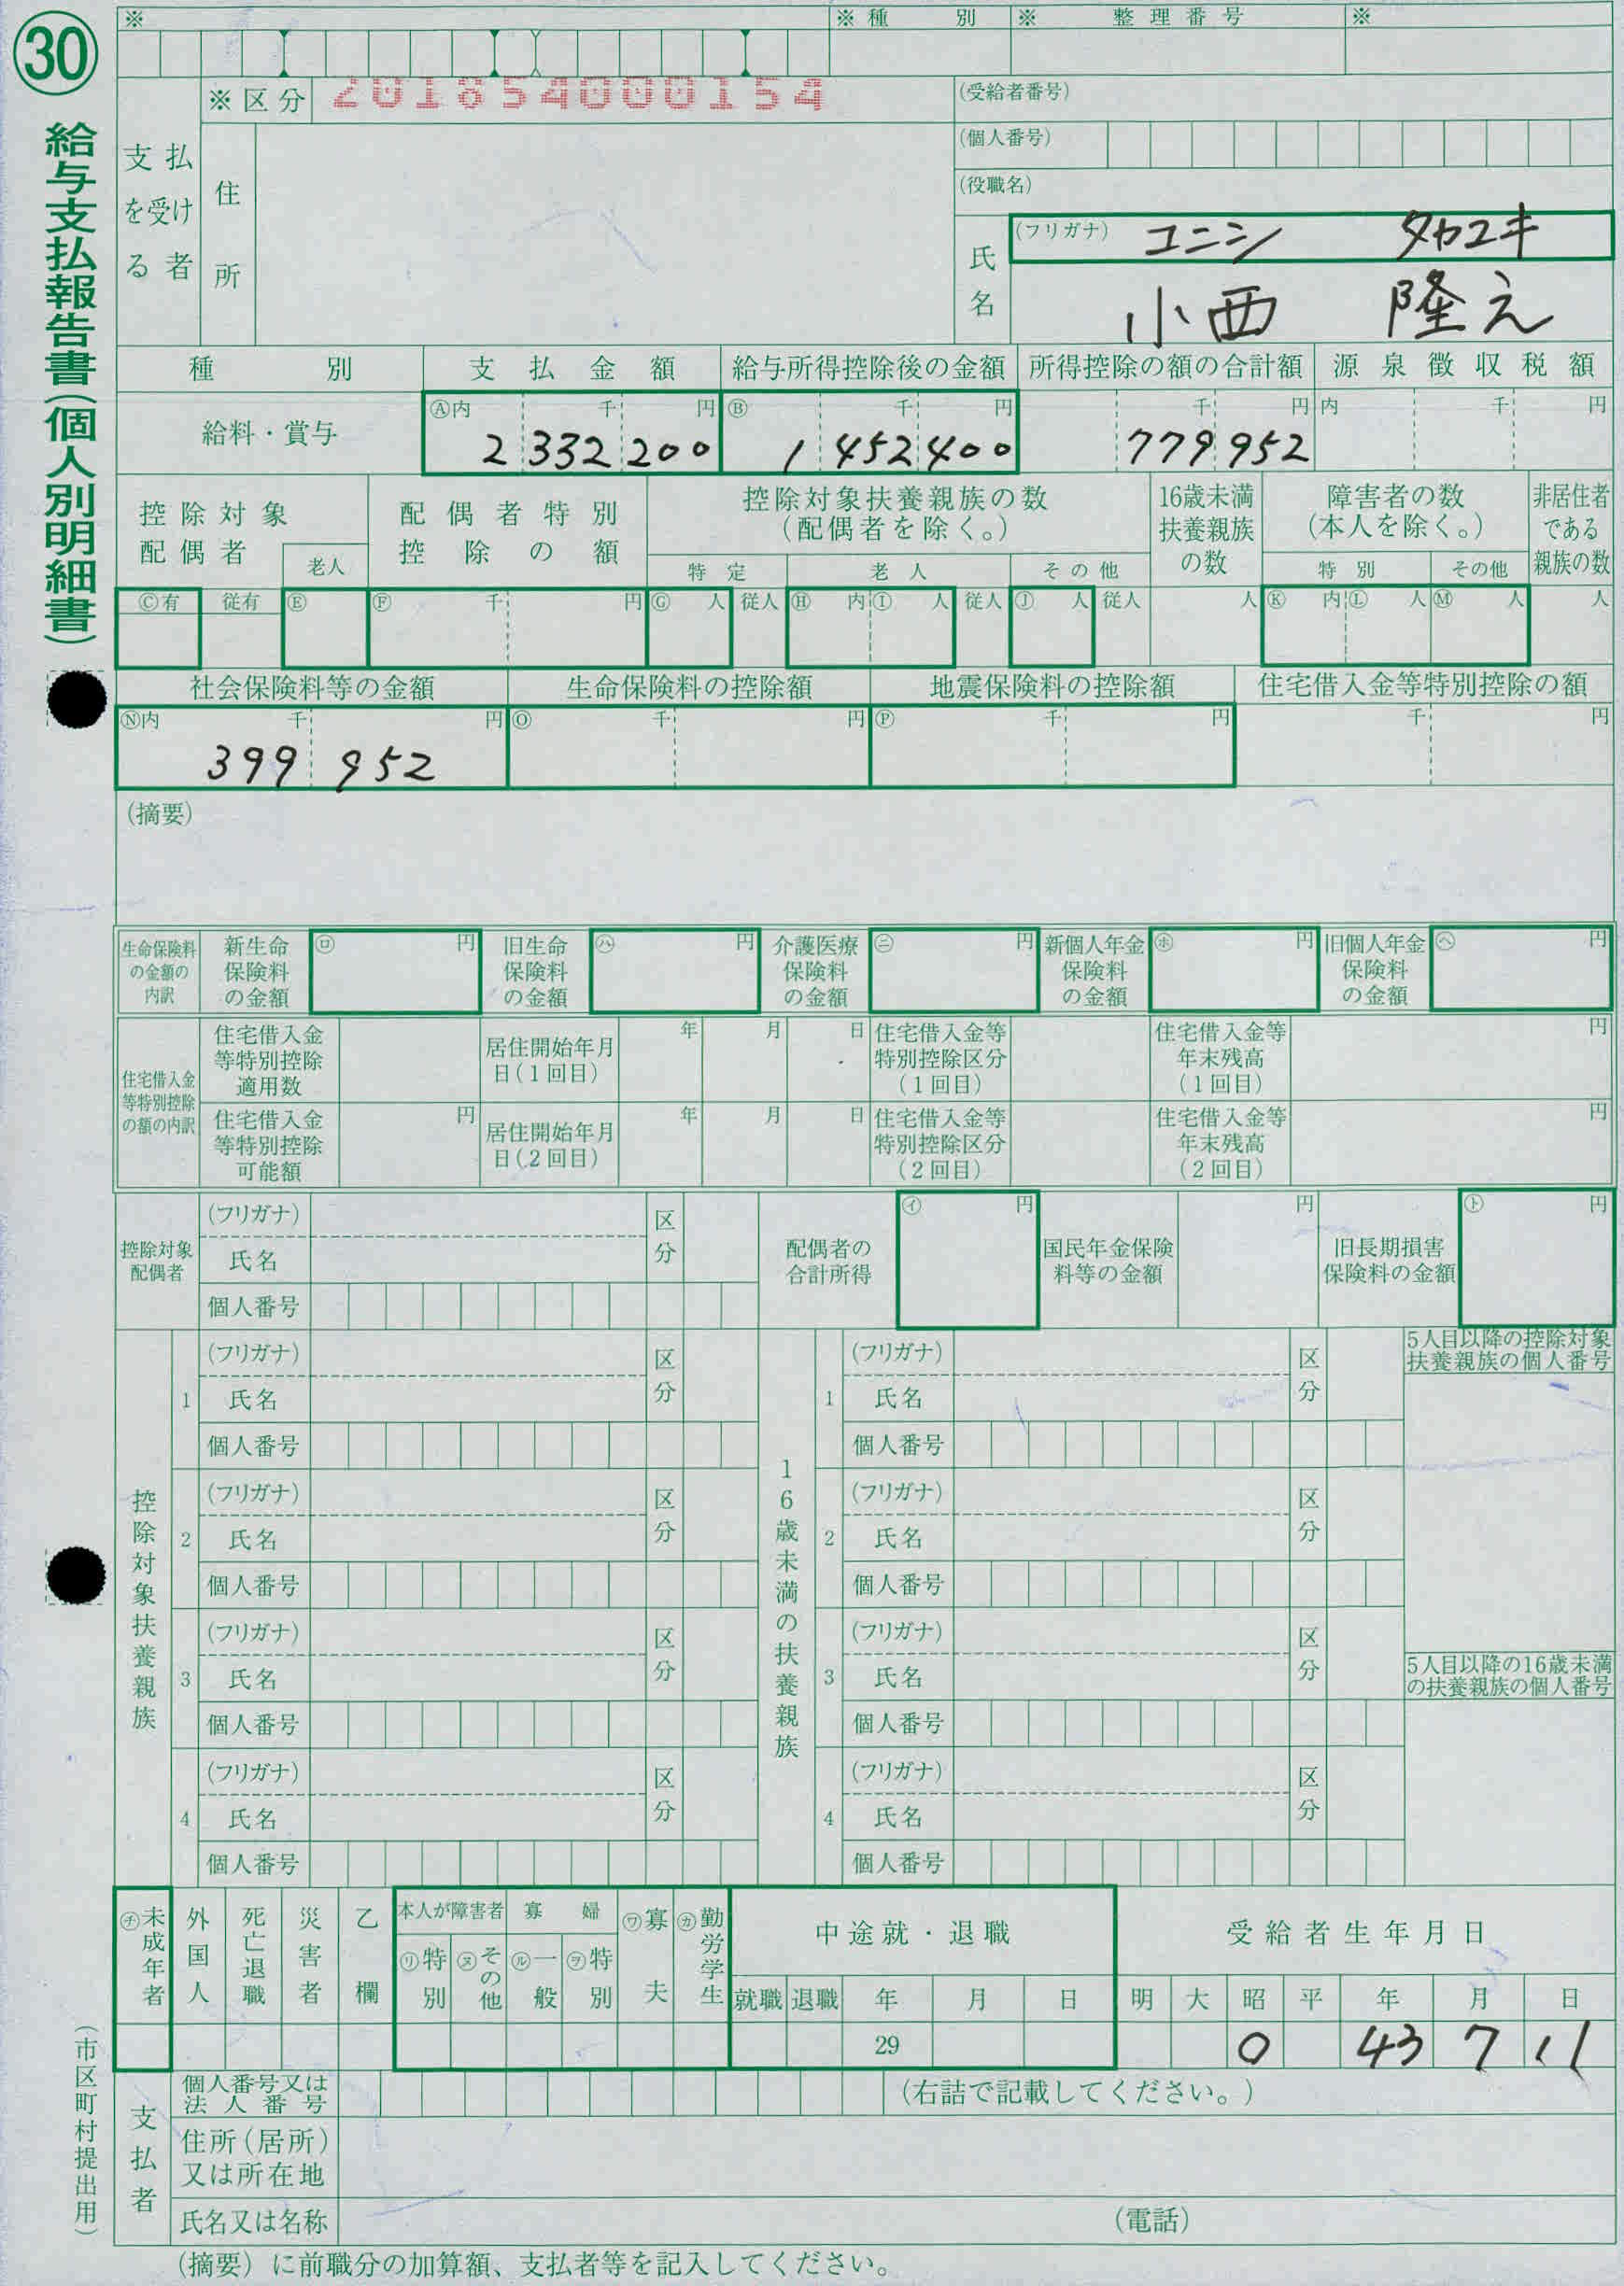 30
給与支払報告書(個人別明細書)
※ ※種別 ※整理番号 ※
※区分 201854000154
(受給者番号)
(個人番号)
(役職名)
支払を受ける者
住所
氏名
(フリガナ) コニシ タカユキ
小西 隆え
種別 支払金額 給与所得控除後の金額 所得控除の額の合計額 源泉徴収税額
給料・賞与 Ⓐ内 千 円 2 332 200 Ⓑ 千 円 1 452 400 千 円 779 952 内 千 円
控除対象配偶者 老人 配偶者特別控除の額 控除対象扶養親族の数(配偶者を除く。) 特定 老人 その他 16歳未満扶養親族の数 障害者の数(本人を除く。) 特別 その他 非居住者である親族の数
Ⓒ有 従有 Ⓔ Ⓕ 千 円 Ⓖ 人 従人 Ⓗ 内 Ⓘ 人 従人 Ⓙ 人 従人 人 Ⓚ 内 Ⓛ 人 Ⓜ 人 人
社会保険料等の金額 生命保険料の控除額 地震保険料の控除額 住宅借入金等特別控除の額
Ⓝ内 千 円 399 952 Ⓞ 千 円 Ⓟ 千 円 千 円
(摘要)
生命保険料の金額の内訳 新生命保険料の金額 ㋺ 円 旧生命保険料の金額 ㋩ 円 介護医療保険料の金額 ㋥ 円 新個人年金保険料の金額 ㋭ 円 旧個人年金保険料の金額 ㋬ 円
住宅借入金等特別控除の額の内訳
住宅借入金等特別控除適用数 居住開始年月日(1回目) 年 月 日 住宅借入金等特別控除区分(1回目) 住宅借入金等年末残高(1回目) 円
住宅借入金等特別控除可能額 円 居住開始年月日(2回目) 年 月 日 住宅借入金等特別控除区分(2回目) 住宅借入金等年末残高(2回目) 円
控除対象配偶者 (フリガナ) 氏名 区分 個人番号 配偶者の合計所得 ㋑ 円 国民年金保険料等の金額 円 旧長期損害保険料の金額 ㋣ 円
控除対象扶養親族
1 (フリガナ) 氏名 区分 個人番号
2 (フリガナ) 氏名 区分 個人番号
3 (フリガナ) 氏名 区分 個人番号
4 (フリガナ) 氏名 区分 個人番号
16歳未満の扶養親族
1 (フリガナ) 氏名 区分 個人番号
2 (フリガナ) 氏名 区分 個人番号
3 (フリガナ) 氏名 区分 個人番号
4 (フリガナ) 氏名 区分 個人番号
5人目以降の控除対象扶養親族の個人番号
5人目以降の16歳未満の扶養親族の個人番号
㋠未成年者 外国人 死亡退職 災害者 乙欄 本人が障害者 ㋷特別 ㋦その他 寡婦 ㋸一般 ㋾特別 ㋻寡夫 ㋕勤労学生 中途就・退職 受給者生年月日
就職 退職 年 月 日 明 大 昭 平 年 月 日
29 0 43 7 11
支払者
個人番号又は法人番号 (右詰で記載してください。)
住所(居所)又は所在地
氏名又は名称 (電話)
(摘要)に前職分の加算額、支払者等を記入してください。
(市区町村提出用)